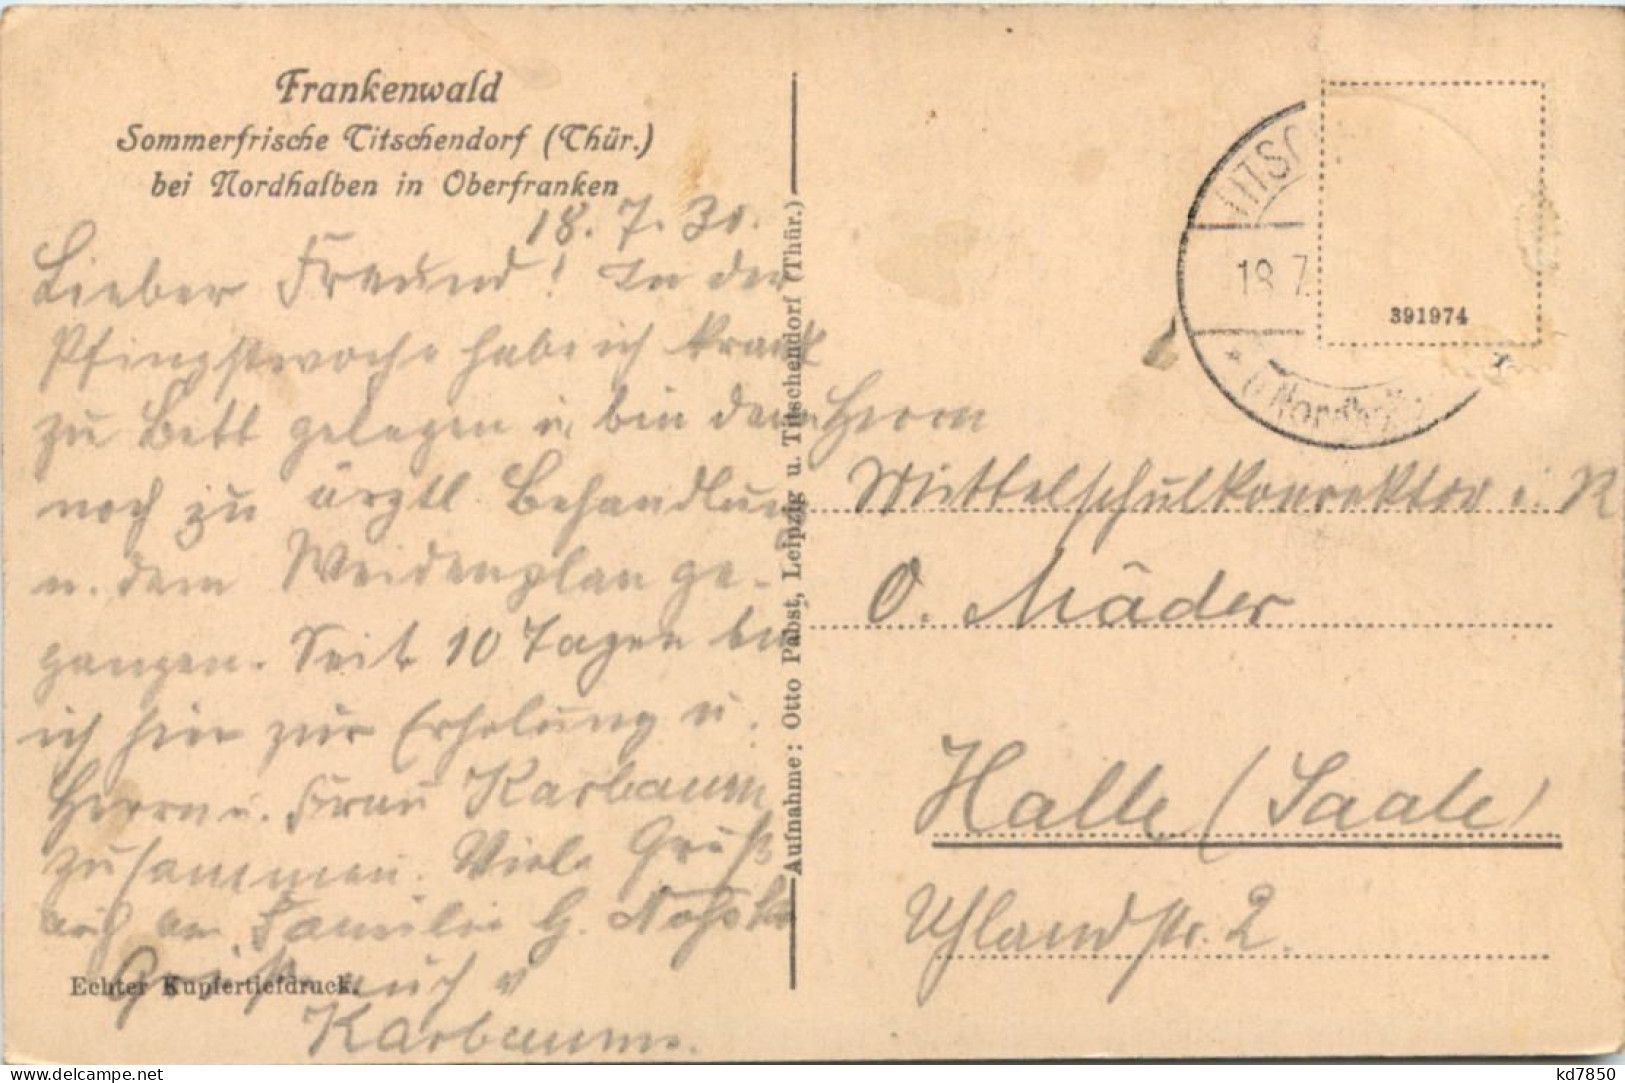 Frankenwald
Sommerfrische Titschendorf (Thür.)
bei Nordhalben in Oberfranken
18. 7. 30.
Lieber Freund! In der
Pfingstwoche habe ich krank
zu Bett gelegen u. bin dann
noch zu ärztl. Behandlung
n. dem Weidenplan ge-
gangen. Seit 10 Tagen bin
ich hier zur Erholung u.
Herrn u. Frau Karbaum
zusammen. Viele Grüße
auch an Familie G.
Gruß auch v
Karbaum.
Echter Kupfertiefdruck.
Aufnahme: Otto Pabst, Leipzig u. Titschendorf (Thür.)
TITSC
18. 7.
391974
Herrn
Mittelschulkonrektor i. R
O. Mäder
Halle (Saale)
Uhlandstr. 2.
kd7850